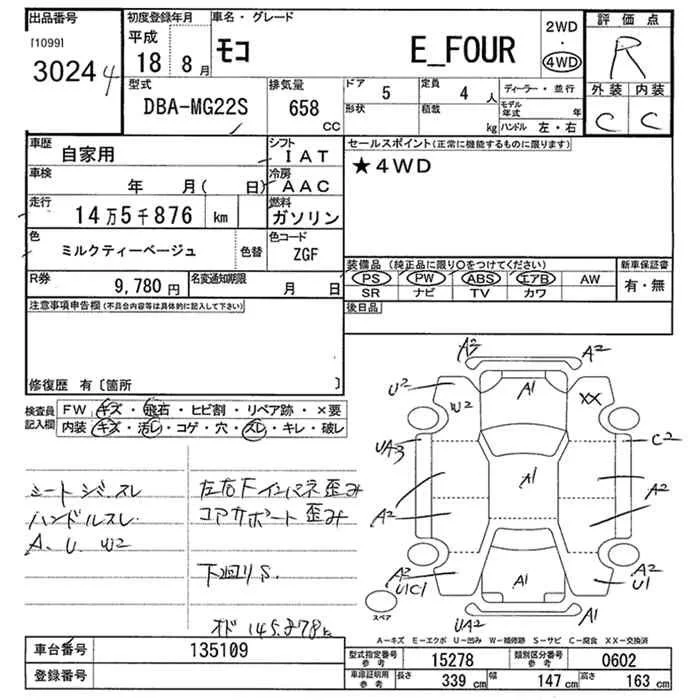 出品番号 初度登録年月 車名・グレード 評価点
[1099] 平成 2WD
30244 18 8月 モコ E_FOUR ・ R
4WD
外装 内装
C C
型式 排気量 ドア 5 定員 4人 ディーラー・並行
DBA-MG22S 658 CC 形状 積載 kg モデル年式 年
ハンドル 左・右
車歴 自家用 シフト IAT セールスポイント(正常に機能するものに限ります)
車検 年 月( 日) 冷房 AAC ★4WD
走行 14万5千876 km 燃料 ガソリン
色 ミルクティーベージュ 色替 色コード ZGF
R券 9,780円 名変通知期限 月 日
装備品 (純正品に限り○をつけてください) 新車保証書
PS PW ABS エアB AW 有・無
SR ナビ TV カワ
注意事項申告欄(不具合内容等は具体的に記入して下さい) 後日品
修復歴 有〔箇所 〕
検査員記入欄 FW キズ・飛石・ヒビ割・リペア跡・×要
内装 キズ・汚レ・コゲ・穴・スレ・キレ・破レ
シートシミスレ
ハンドルスレ
A、U、W2
左右Fインパネ歪み
コアサポート歪み
下回りS
オド 145,878k
A2 A2
U2 W2 A1 XX
UA3 C2
A1
A2 A2
A2 U1C1 A1 A2 U1
スペア UA2 A1
A-キズ E-エクボ U-凹み W-補修跡 S-サビ C-腐食 XX-交換済
車台番号 135109
登録番号
型式指定番号 参考 15278 類別区分番号 参考 0602
車庫証明用 参考 長さ 339cm 幅 147cm 高さ 163cm